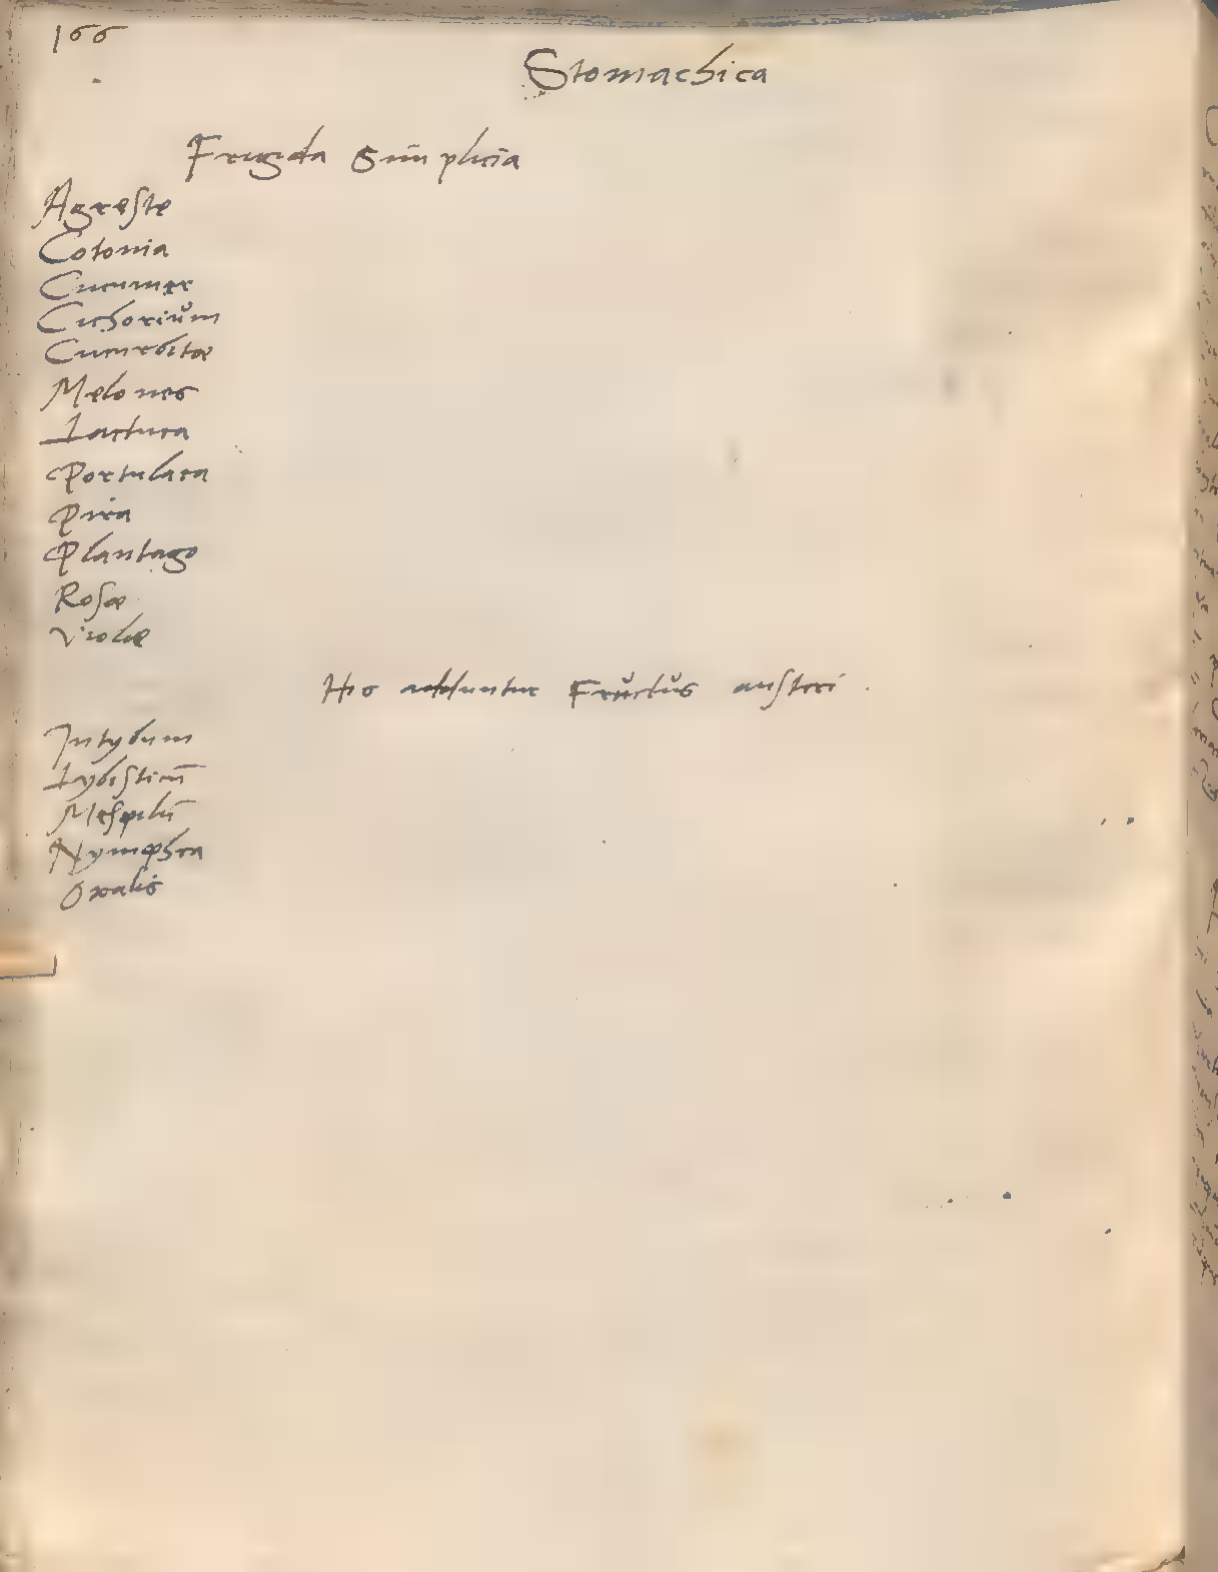 166
Stomachica
Frigida Simplicia
Agreste
Cotonia
Cucumer
Cichoriŭm
Cucurbitæ
Melones
Lactuca
Portulaca
Pira
Plantago
Rosæ
Violæ
His adduntur Frŭctŭs austeri.
Intybum
Lybisticū
Mespilū
Nymphea
Oxalis